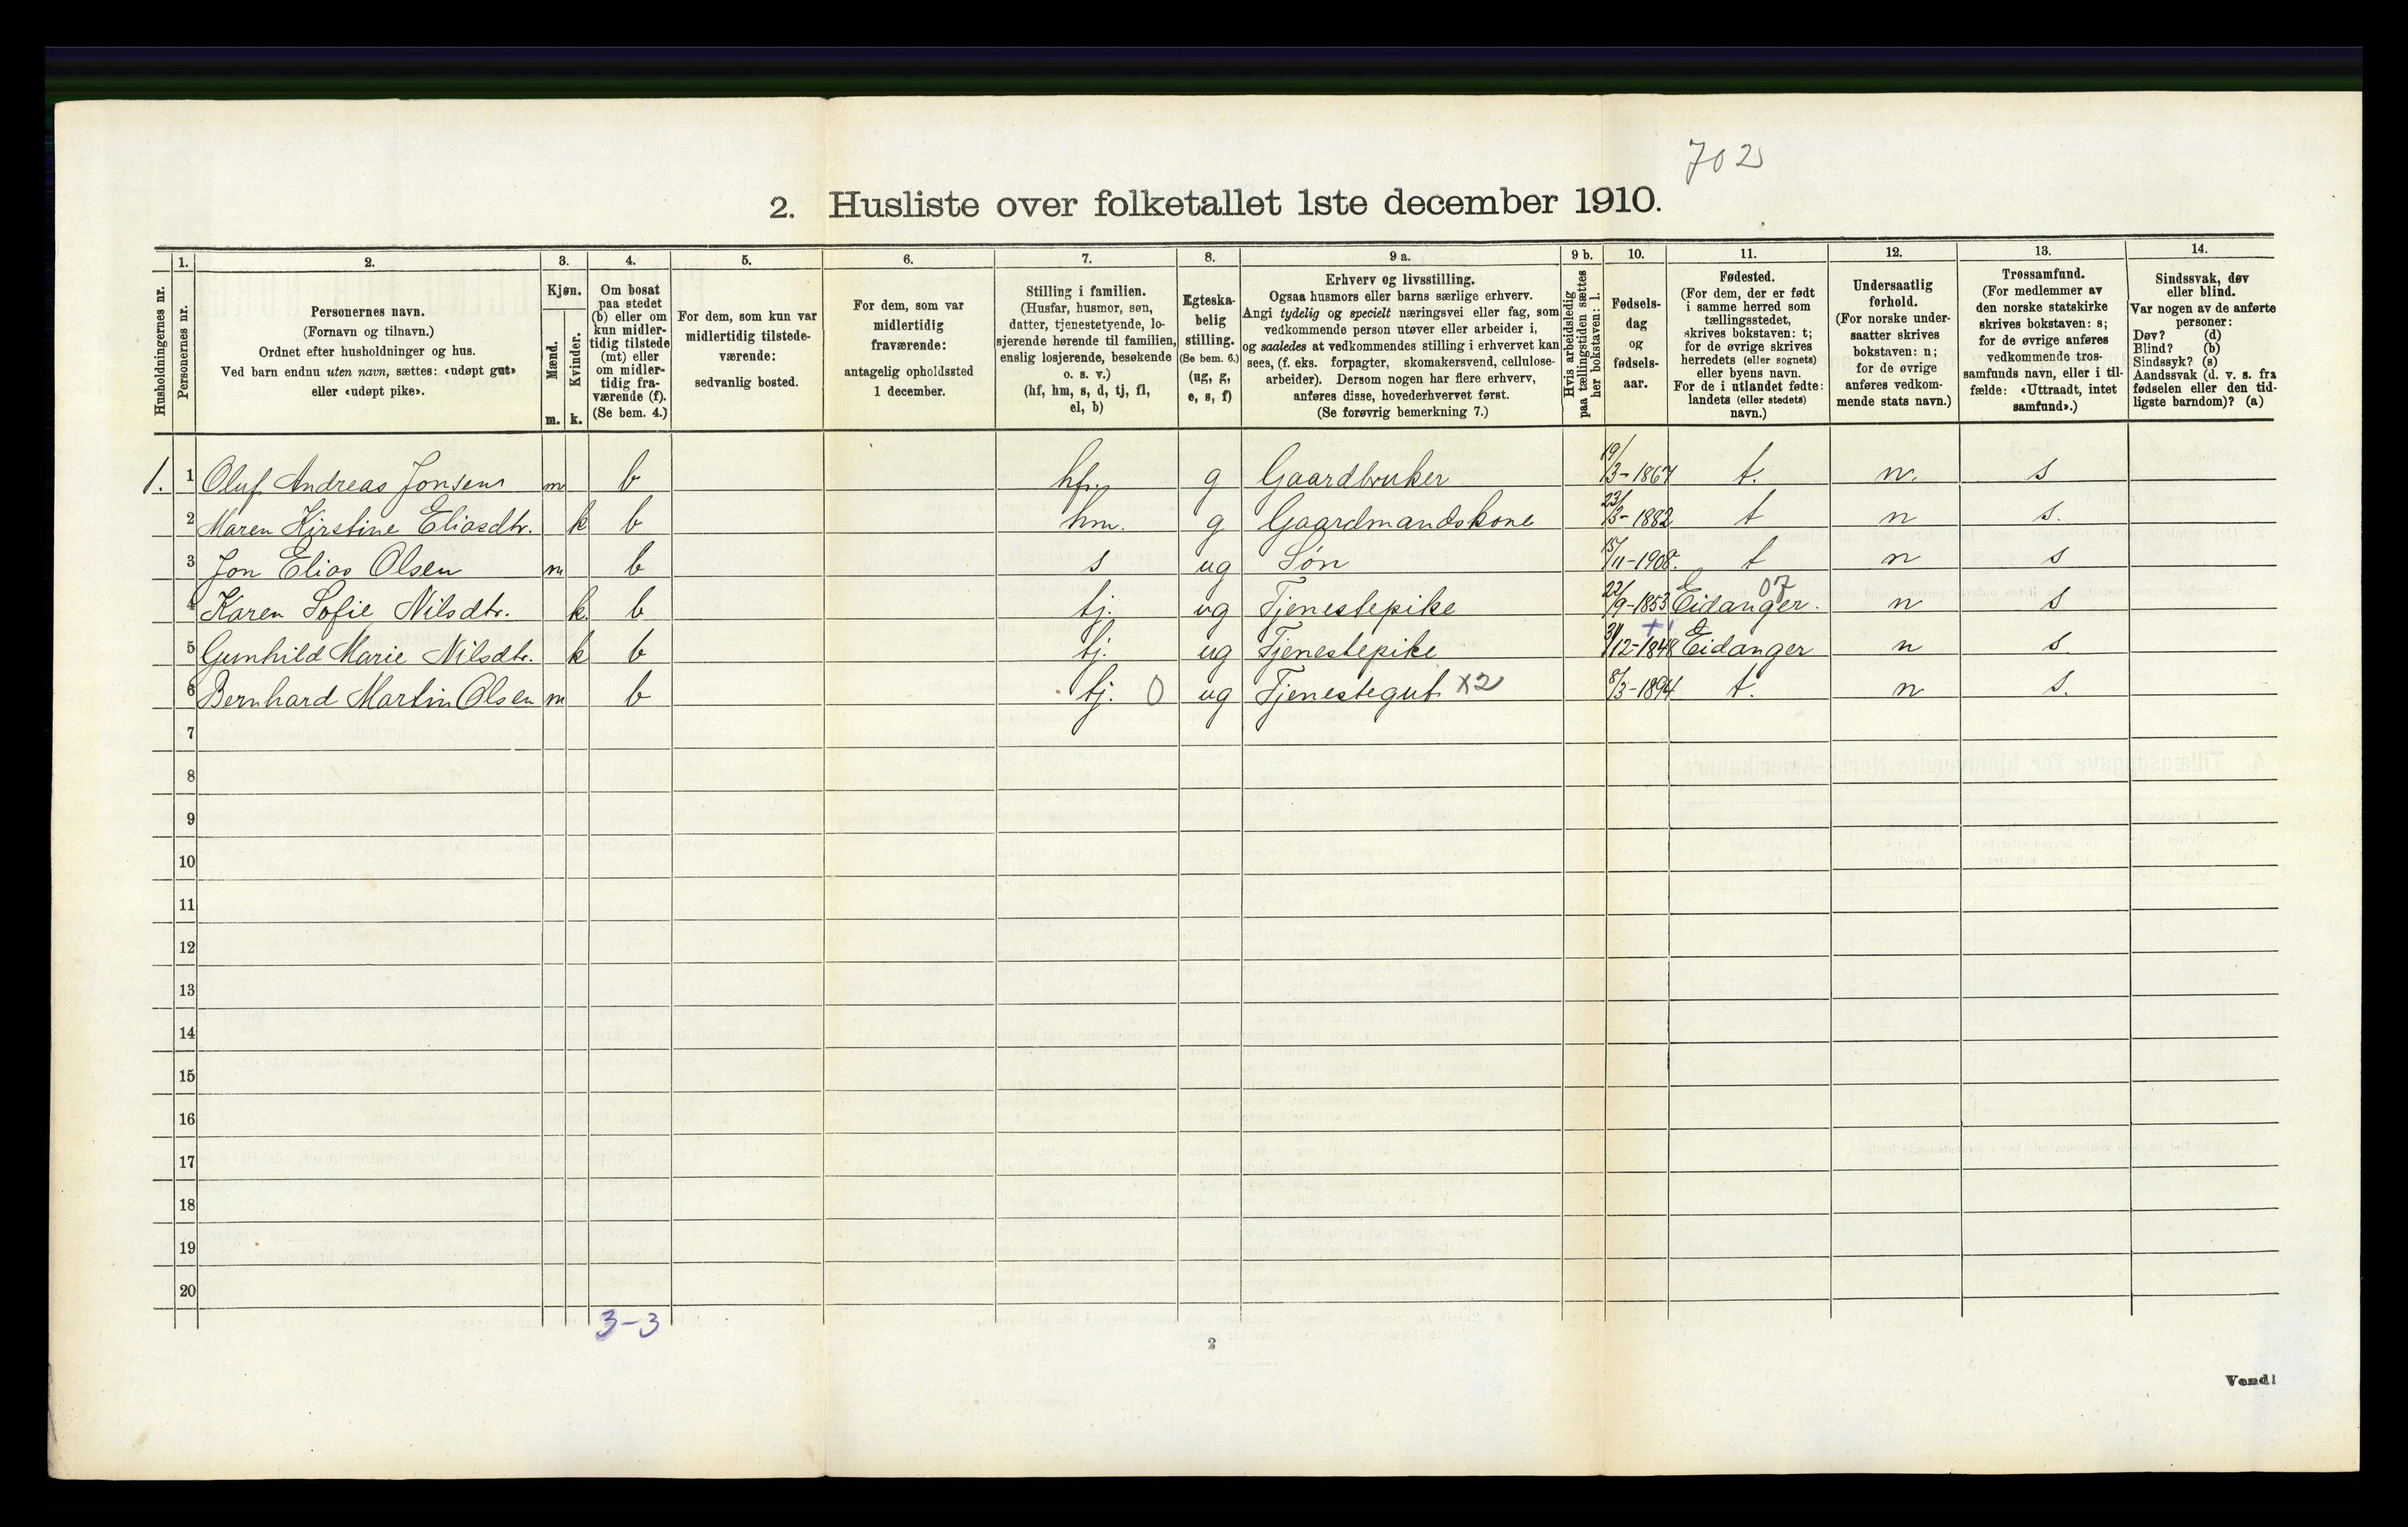 702
2. Husliste over folketallet 1ste december 1910.
Husholdningernes nr.
1.
Personernes nr.
2.
Personernes navn.
(Fornavn og tilnavn.)
Ordnet efter husholdninger og hus.
Ved barn endnu uten navn, sættes: «udøpt gut»
eller «udøpt pike».
3.
Kjøn.
Mænd.
Kvinder.
m. k.
4.
Om bosat
paa stedet
(b) eller om
kun midler-
tidig tilstede
(mt) eller
om midler-
tidig fra-
værende (f).
(Se bem. 4.)
5.
For dem, som kun var
midlertidig tilstede-
værende:
sedvanlig bosted.
6.
For dem, som var
midlertidig
fraværende:
antagelig opholdssted
1 december.
7.
Stilling i familien.
(Husfar, husmor, søn,
datter, tjenestetyende, lo-
sjerende hørende til familien,
enslig losjerende, besøkende
o. s. v.)
(hf, hm, s, d, tj, fl,
el, b)
8.
Egteska-
belig
stilling.
(Se bem. 6.)
(ug, g,
e, s, f)
9 a.
Erhverv og livsstilling.
Ogsaa husmors eller barns særlige erhverv.
Angi tydelig og specielt næringsvei eller fag, som
vedkommende person utøver eller arbeider i,
og saaledes at vedkommendes stilling i erhvervet kan
sees, (f. eks. forpagter, skomakersvend, cellulose-
arbeider). Dersom nogen har flere erhverv,
anføres disse, hovederhvervet først.
(Se forøvrig bemerkning 7.)
9 b.
Hvis arbeidsledig
paa tællingstiden sættes
her bokstaven: l.
10.
Fødsels-
dag
og
fødsels-
aar.
11.
Fødested.
(For dem, der er født
i samme herred som
tællingsstedet,
skrives bokstaven: t;
for de øvrige skrives
herredets (eller sognets)
eller byens navn.
For de i utlandet fødte:
landets (eller stedets)
navn.)
12.
Undersaatlig
forhold.
(For norske under-
saatter skrives
bokstaven: n;
for de øvrige
anføres vedkom-
mende stats navn.)
13.
Trossamfund.
(For medlemmer av
den norske statskirke
skrives bokstaven: s;
for de øvrige anføres
vedkommende tros-
samfunds navn, eller i til-
fælde: «Uttraadt, intet
samfund».)
14.
Sindssvak, døv
eller blind.
Var nogen av de anførte
personer:
Døv? (d)
Blind? (b)
Sindssyk? (s)
Aandssvak (d. v. s. fra
fødselen eller den tid-
ligste barndom)? (a)
1. 1 Oluf Andreas Jonsen m b hf. g Gaardbruker 19/3-1867 t. n. s
2 Maren Kirstine Eliasdtr. k b hm. g Gaardmandskone 23/3-1882 t n s.
3 Jon Elias Olsen m b s ug Søn 15/11-1908. t n s
4 Karen Sofie Nilsdtr. k. b tj. ug Tjenestepike 22/9-1853 Eidanger. 07 n s
5 Gunhild Marie Nilsdtr. k b tj. ug Tjenestepike 31/12-1848 Eidanger n s.
6 Bernhard Martin Olsen m b tj. 0 ug Tjenestegut x2 8/3-1894 t. n s.
7
8
9
10
11
12
13
14
15
16
17
18
19
20
3-3
2
Vend!